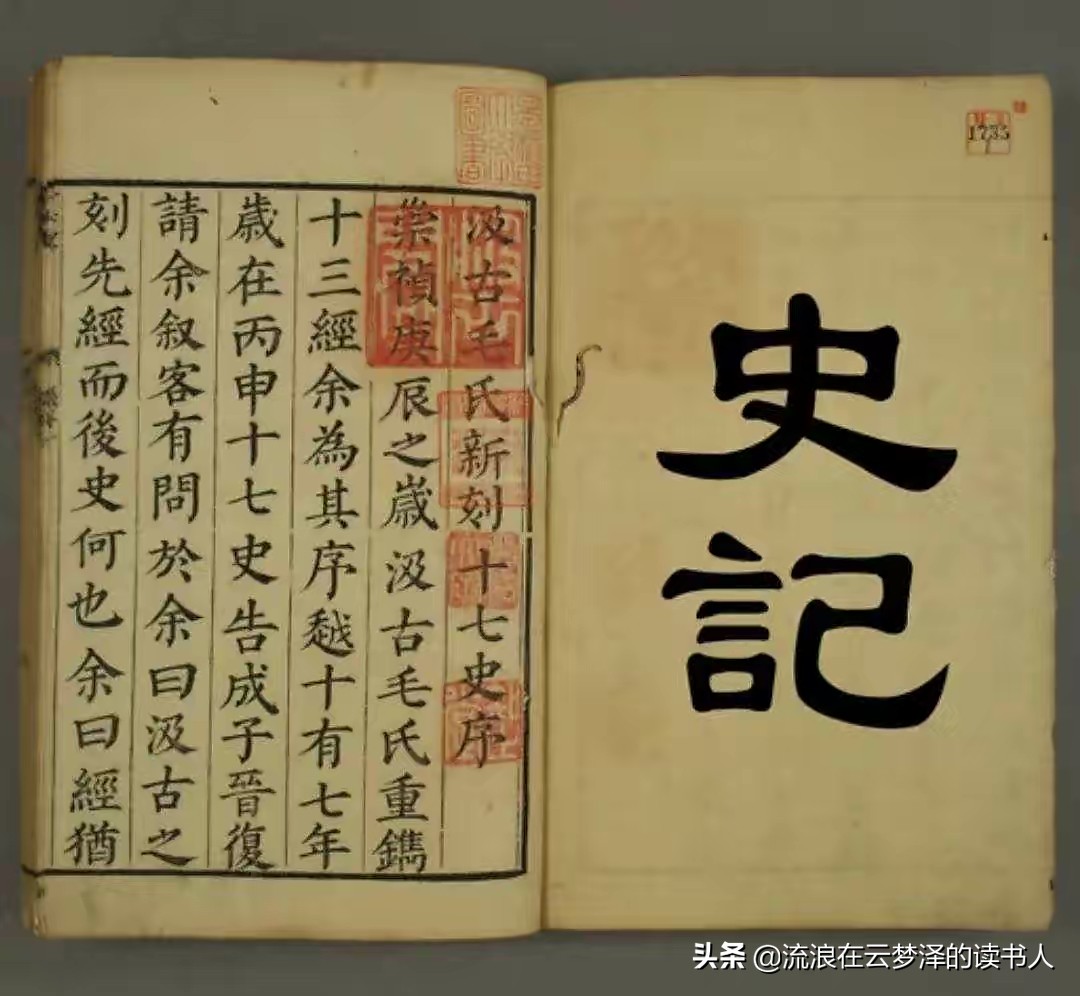 史記
1735
汲古毛氏新刻十七史序
崇禎庚辰之歲汲古毛氏重鐫
十三經余為其序越十有七年
歲在丙申十七史告成子晉復
請余叙客有問於余曰汲古之
刻先經而後史何也余曰經猶
头条 @流浪在云梦泽的读书人